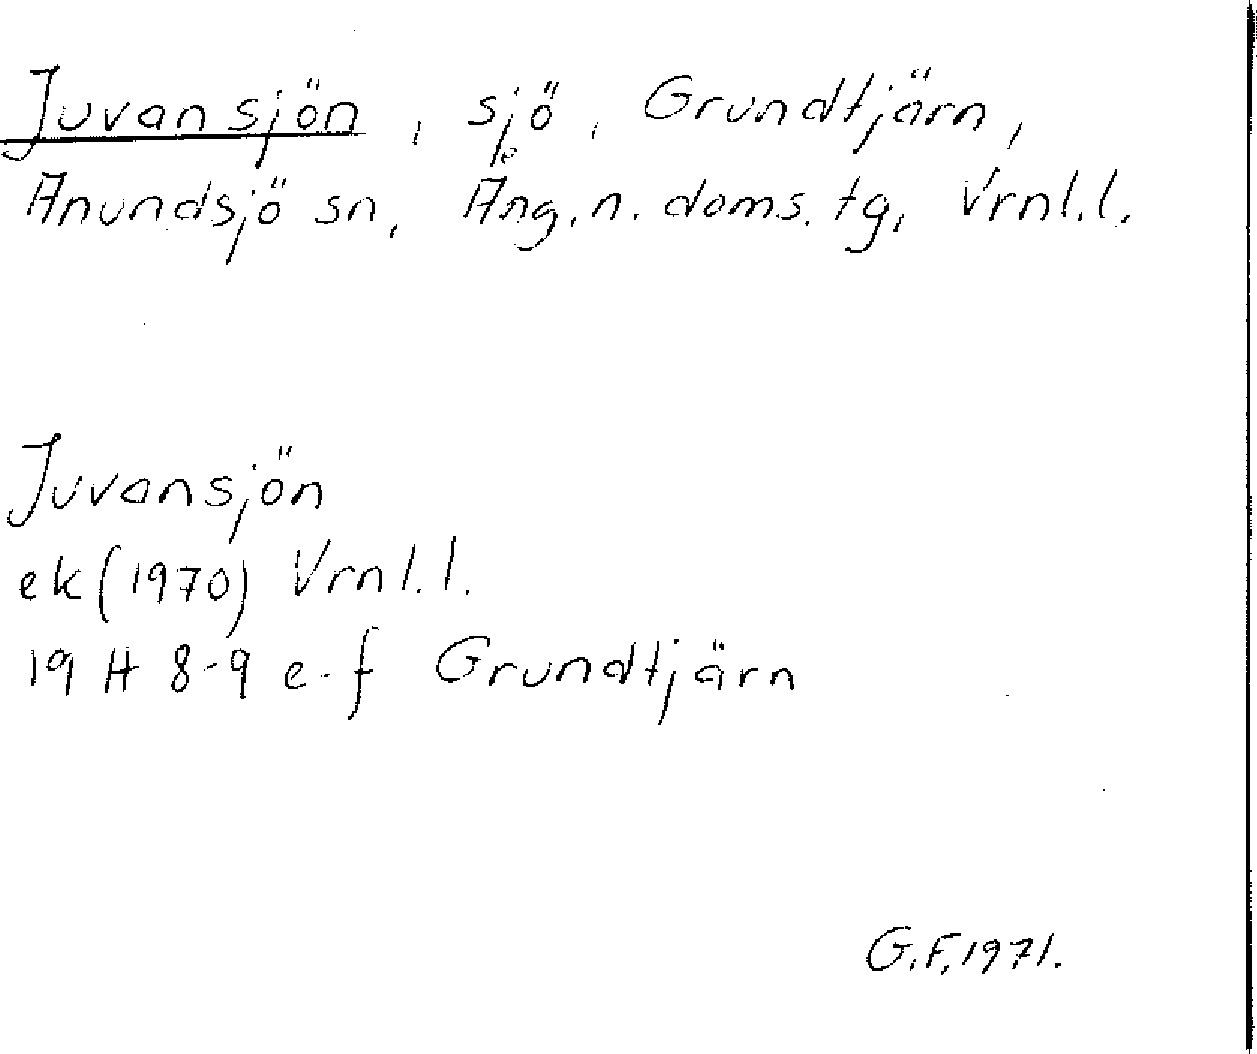 Juvansjön, sjö, Grundtjärn,
Anundsjö sn, Ång. n. doms. tg, Vrnl. l.
Juvansjön
ek (1970) Vrnl. l.
19 H 8-9 e-f Grundtjärn
G.F. 1971.